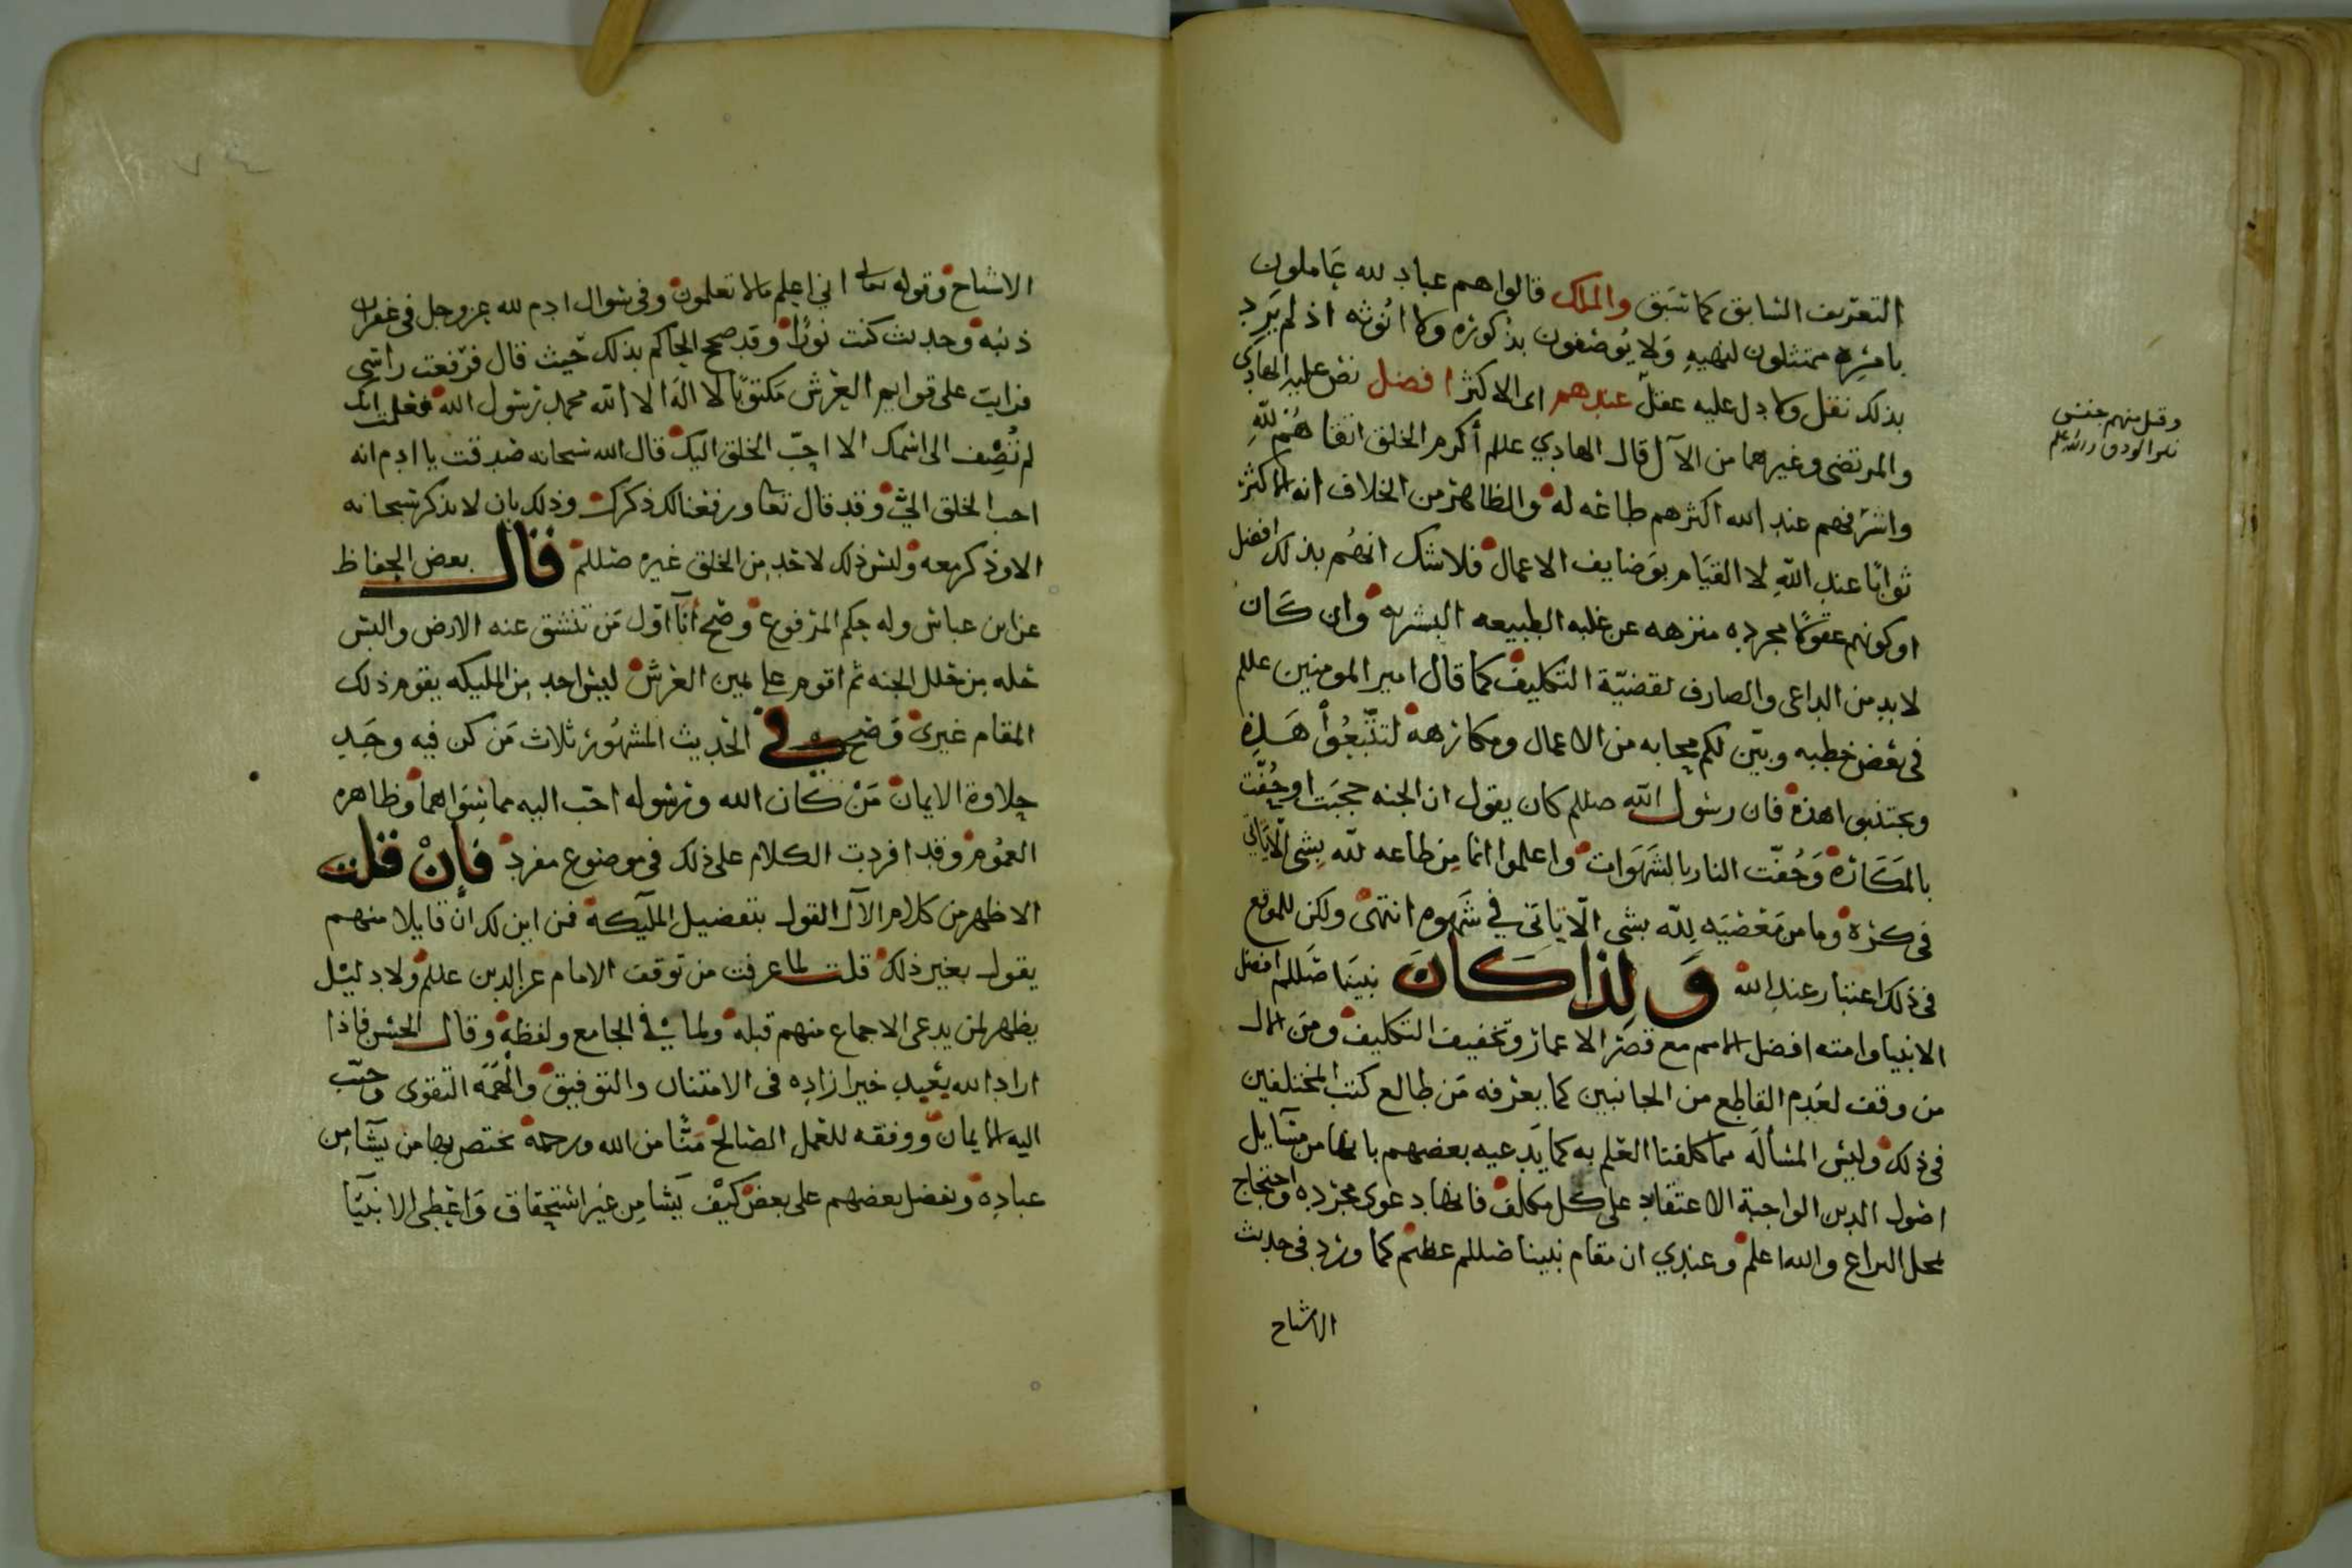 التعريف السابق كما سبق والملك قالوا هم عباد لله عاملون
بامره ممتثلون لنهيه ولا يوصفون بذكوره ولا انوثه اذ لم يرد
بذلك نقل ولا دل عليه عقل عندهم اى الاكثر افضل نص عليه الهادي
والمرتضى وغيرهما من الآل قال الهادي عللم أكرم الخلق اتقاهم لله
واشرفهم عند الله اكثرهم طاعه له والظاهر من الخلاف انه الاكثر
ثوابًا عند الله لا القيام بوضايف الاعمال فلا شك انهم بذلك افضل
او كونهم عقولا مجرده منزهه عن غلبه الطبيعه البشريه وان كان
لا بد من الداعى والصارف لقضيّة التكليف كما قال امير المومنين عللم
فى بعض خطبه وبيّن لكم محابه من الاعمال ومكارهه لتتّبعوا هذه
وتجتنبوا هذه فان رسول الله صللم كان يقول ان الجنه حجبت او حُفّت
بالمكاره وحُفّت النار بالشهوات واعلموا انما من طاعه لله بشى الّا ياتي
فى كره وما من معصيه لله بشى الّا ياتى في شهوه انتهى ولكن للموقع
فى ذلك اعتبار عند الله ولذا كان نبينا صللم افضل
الانبيا وامته افضل الامم مع قصر الاعمار وتخفيف التكليف ومن الال
من وقف لعدم القاطع من الجانبين كما يعرفه من طالع كتب المختلفين
فى ذلك وليس المسأله مما كلفنا العلم به كما يدعيه بعضهم بانها من مسآيل
اصول الدين الواجبة الاعتقاد على كل مكلف فانها دعوى مجرده واحتجاج
بمحل النزاع والله اعلم وعندي ان مقام نبينا صللم عظيم كما ورد فى حديث
الاشباح
وقيل منهم جنس
الاشباح وقوله تعالى انى اعلم مالا تعلمون وفى سوال ادم لله عز وجل فى غفران
ذنبه وحديث كنت نورًا وقد صحح الحاكم بذلك حيث قال فرفعت راسى
فرايت على قوايم العرش مكتوبًا لا اله الا الله محمد رسول الله فعلمت انك
لم تُضِف الى اسمك الا احبّ الخلق اليك قال الله سبحانه صدقت يا ادم انه
احب الخلق الىّ وقد قال تعا ورفعنا لك ذكرك وذلك بان لا يذكر سبحانه
الا وذكر معه وليس ذلك لاحد من الخلق غيره صللم قال بعض الحفاظ
عن ابن عباس وله حكم المرفوع وصح أنآ اوّل من تنشق عنه الارض والبس
حله من حلل الجنه ثم اقوم على يمين العرش ليس احد من المليكه يقوم ذلك
المقام غيرى وصح في الحديث المشهور ثلاث من كن فيه وجد
حلاوة الايمان من كان الله ورسوله احب اليه مما سواهما وظاهره
العموم وقد افردت الكلام على ذلك فى موضوع مفرد فإن قلت
الاظهر من كلام الآل القول بتفضيل الملآيكة فمن اين لك انّ قايلا منهم
يقول بغير ذلك قلت لما عرفت من توقف الامام عز الدين عللم ولا دليل
يظهر لمن يدعى الاجماع منهم قبله ولما في الجامع ولفظه وقال الحسن فاذا
اراد الله بعبد خيرا زاده فى الامتنان والتوفيق والهمه التقوى وحبّب
اليه الايمان ووفقه للعمل الصالح منًّا من الله ورحمة يختص بها من يشآ من
عباده وفضل بعضهم على بعض كيف يشا من غير استحقاق واعطى الانبيآ